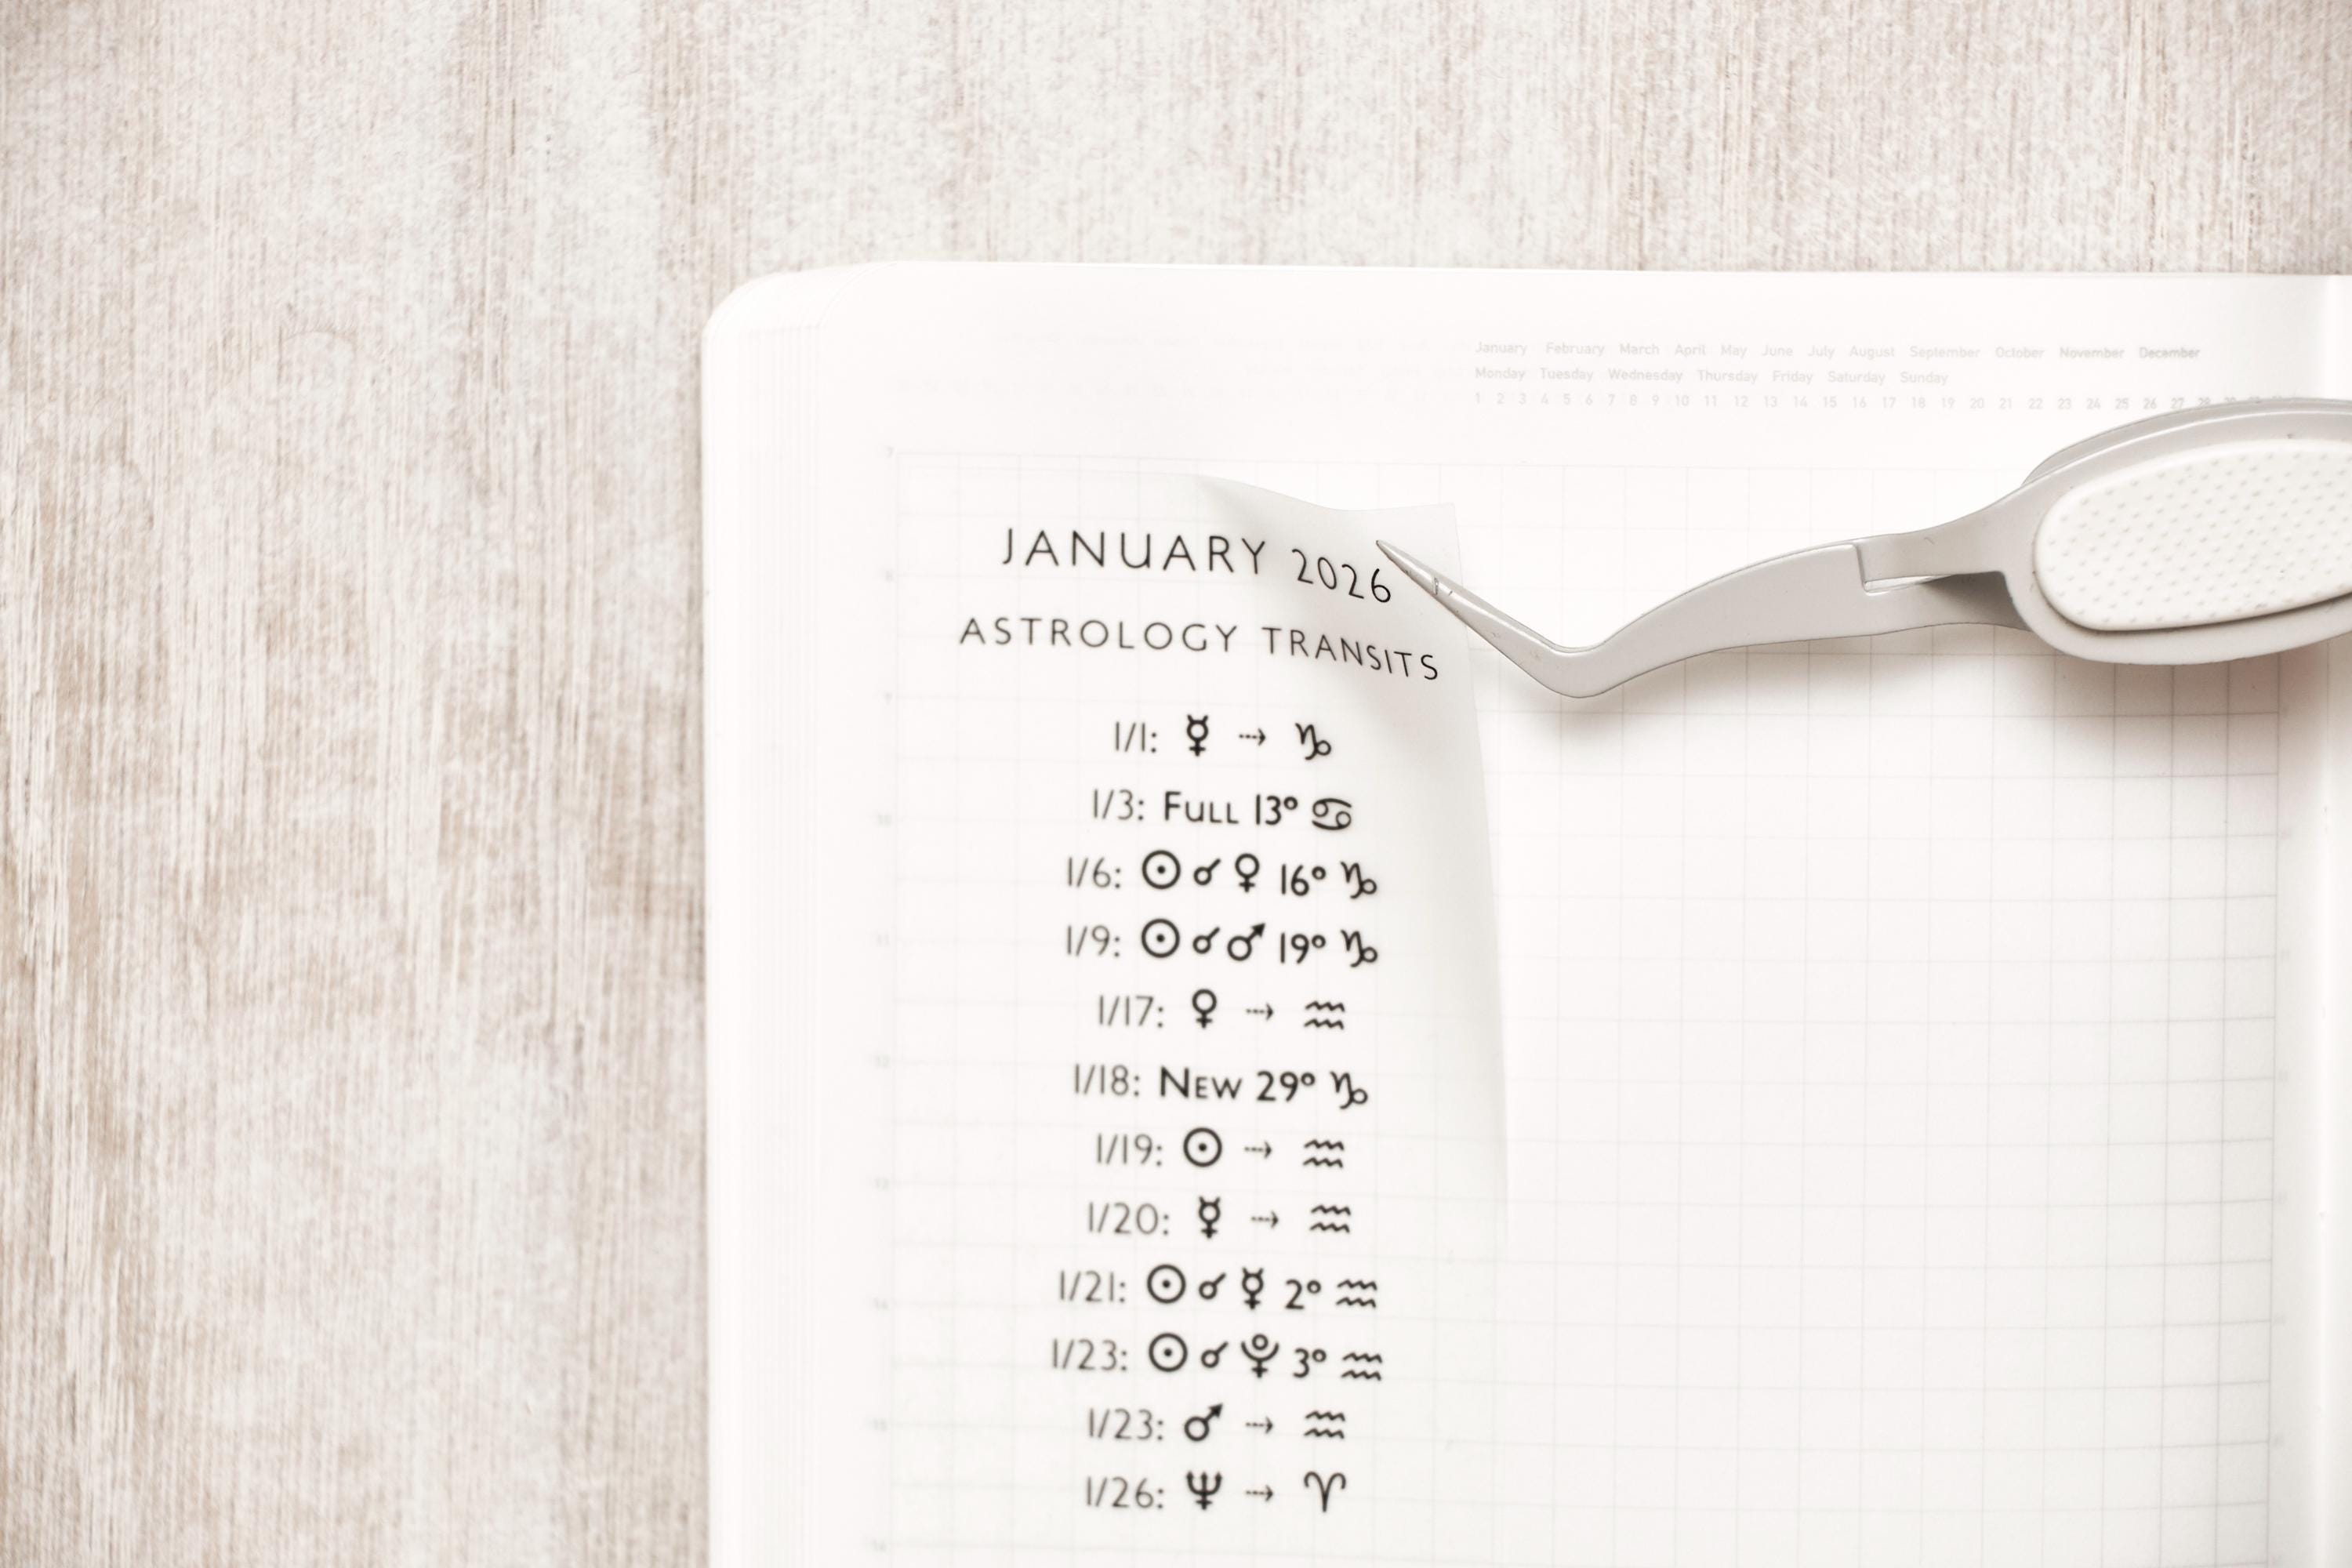 January February March April May June July August September October November December
Monday Tuesday Wednesday Thursday Friday Saturday Sunday
1 2 3 4 5 6 7 8 9 10 11 12 13 14 15 16 17 18 19 20 21 22 23 24 25 26 27 28
7
JANUARY 2026
8
ASTROLOGY TRANSITS
9
1/1: ☿ ⇢ ♑
1/3: FULL 13° ♋
10
1/6: ☉ ☌ ♀ 16° ♑
1/9: ☉ ☌ ♂ 19° ♑
11
1/17: ♀ ⇢ ♒
12
1/18: NEW 29° ♑
1/19: ☉ ⇢ ♒
13
1/20: ☿ ⇢ ♒
1/21: ☉ ☌ ☿ 2° ♒
14
1/23: ☉ ☌ ⯓ 3° ♒
1/23: ♂ ⇢ ♒
15
1/26: ♆ ⇢ ♈